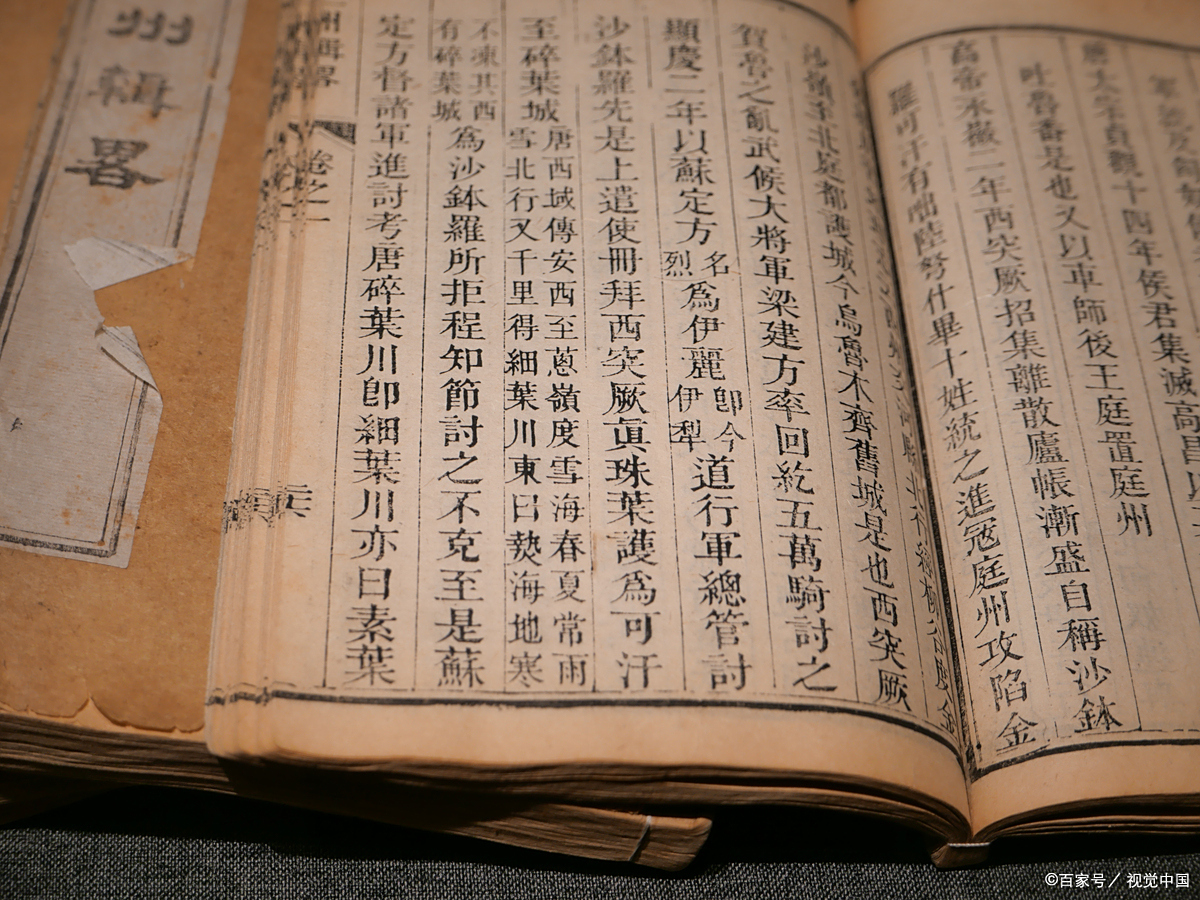 太宗貞觀十四年侯君集滅高昌以
吐魯番是也又以車師後王庭置庭州
高帝永徽二年西突厥招集離散廬帳漸盛自稱沙鉢
羅可汗有咄陸弩什畢十姓統之進寇庭州攻陷金
沙嶺至北庭都護城今烏魯木齊舊城是也西突厥
賀魯之亂武候大將軍梁建方率回紇五萬騎討之
顯慶二年以蘇定方名烈爲伊麗卽今伊犁道行軍總管討
沙鉢羅先是上遣使冊拜西突厥眞珠葉護爲可汗
至碎葉城唐西域傳安西至蔥嶺度雪海春夏常雨雪北行又千里得細葉川東曰𤍠海地寒
不凍其西有碎葉城爲沙鉢羅所拒程知節討之不克至是蘇
定方督諸軍進討考唐碎葉川卽細葉川亦曰素葉
州輯畧
卷之一
州輯畧
©百家号／视觉中国